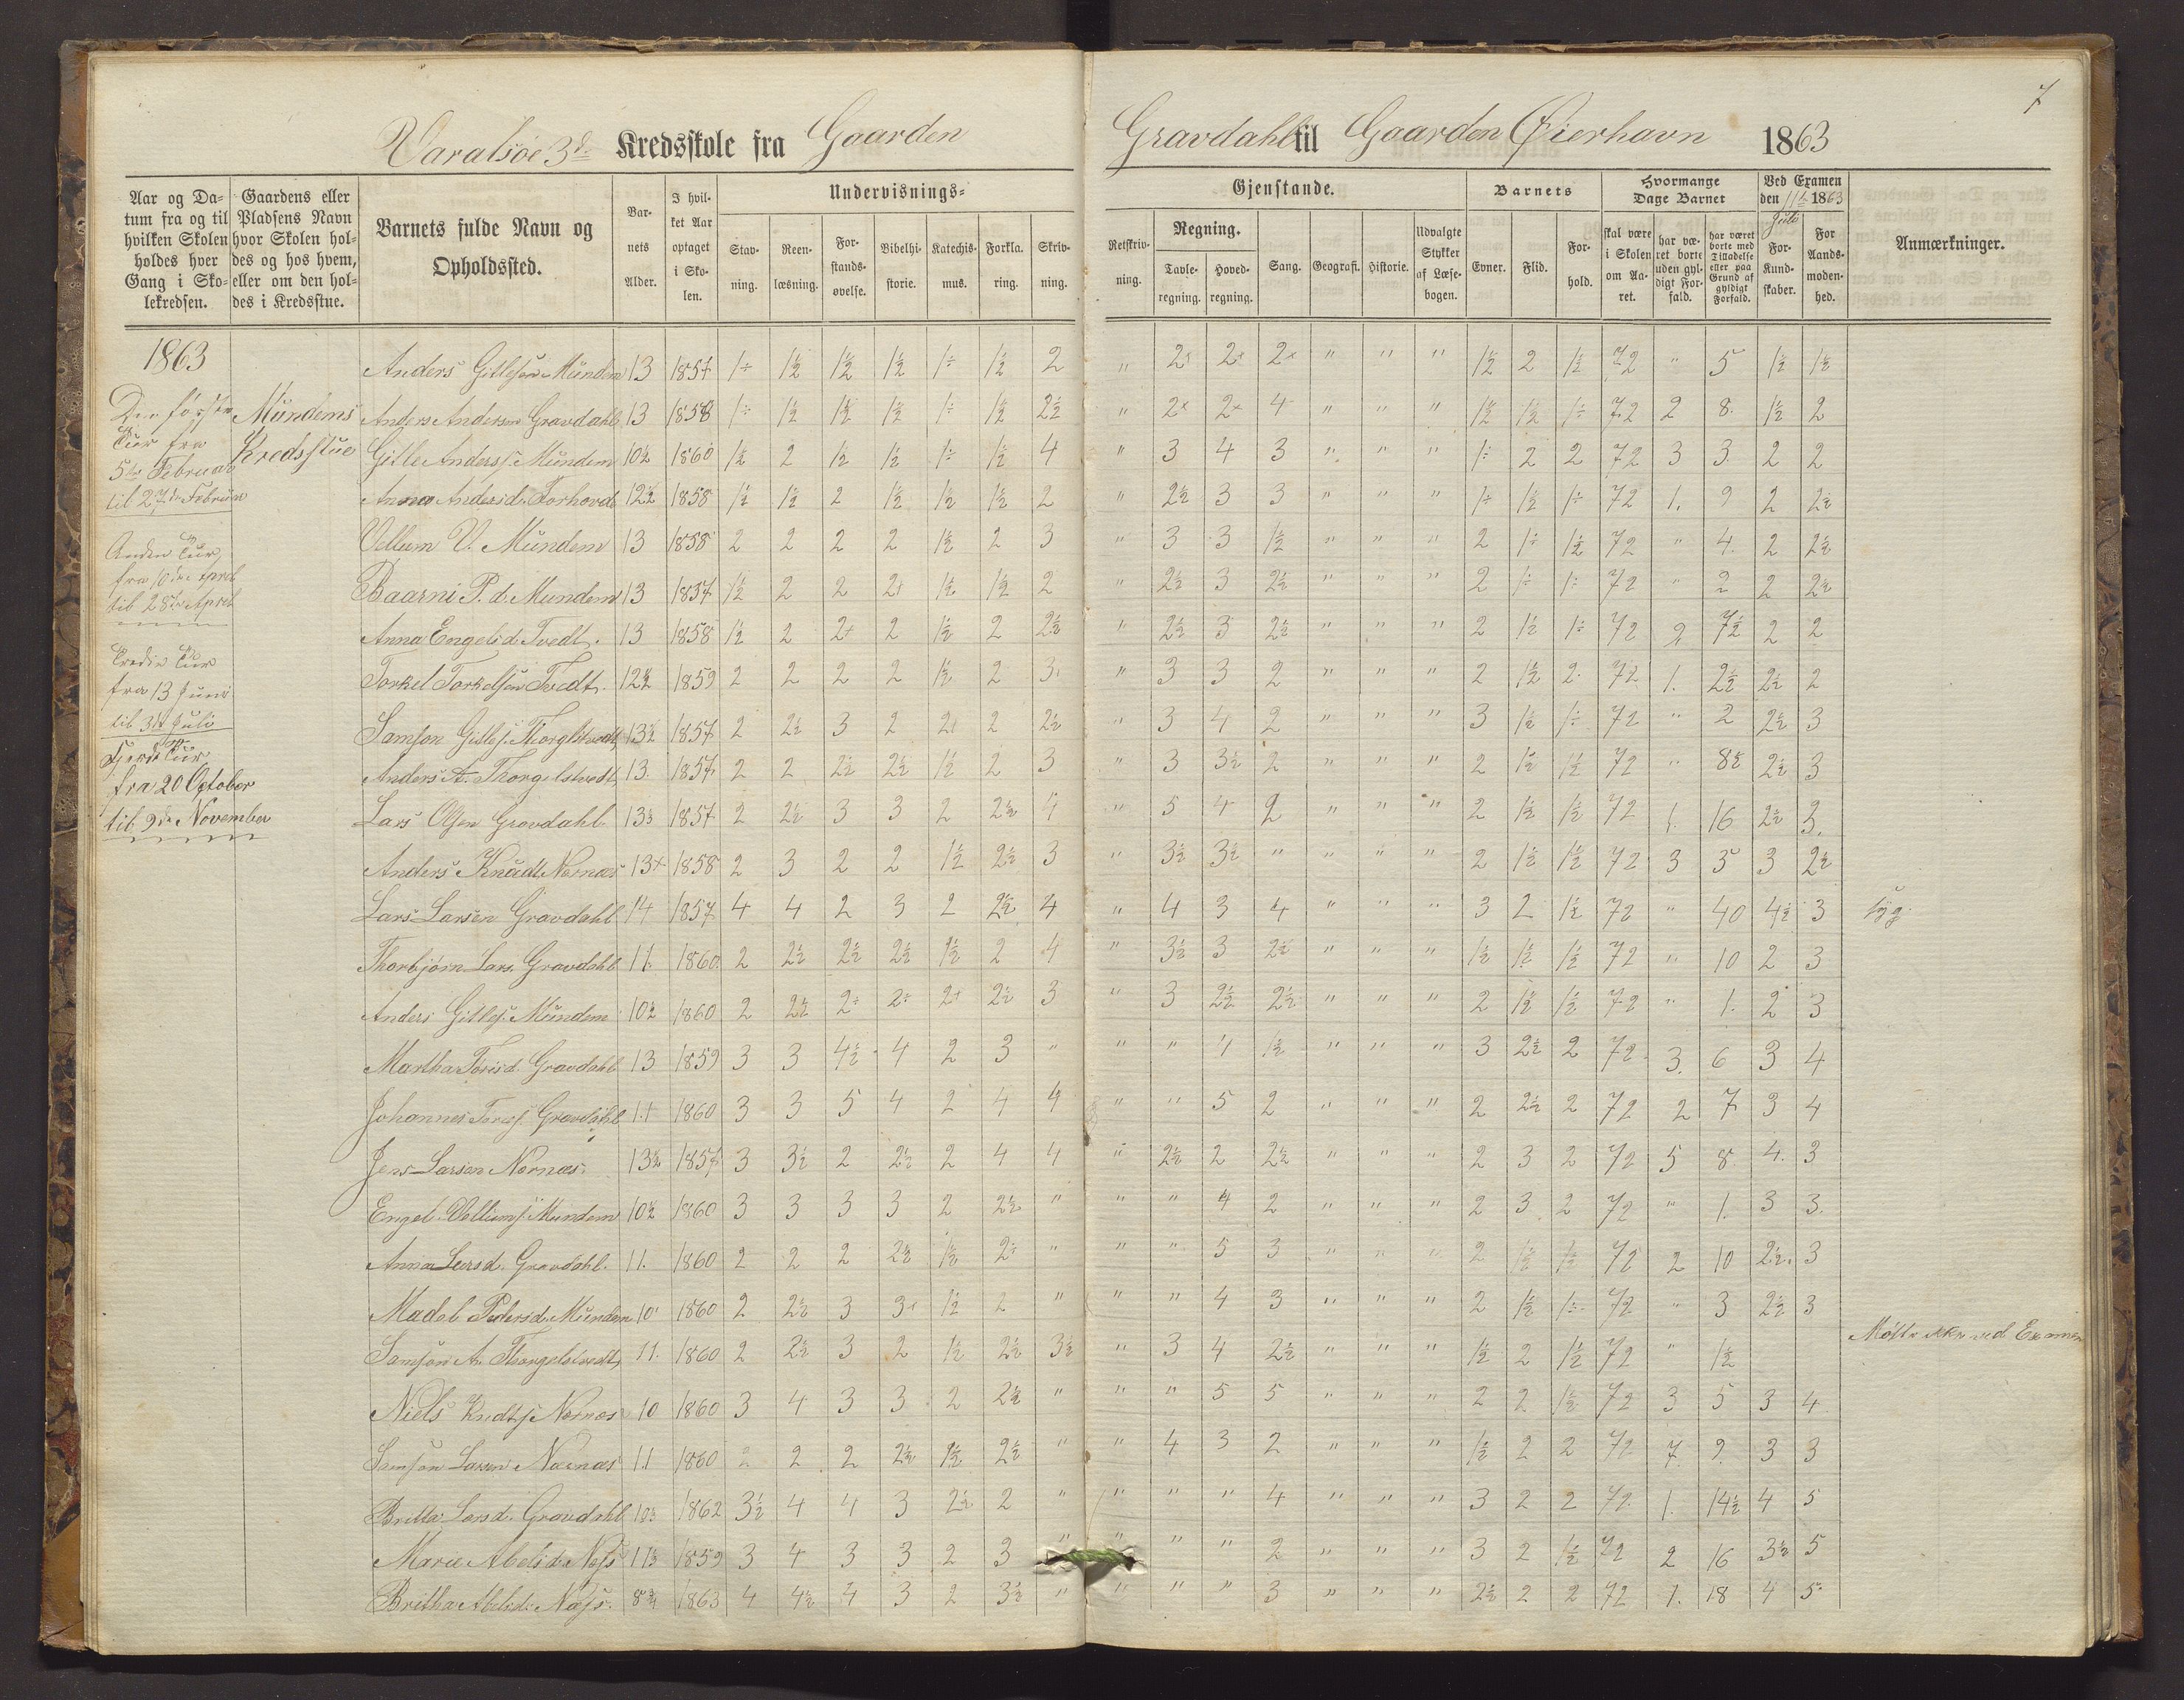 7
Varalsöe 3de Kredsskole fra Gaarden Gravdahl til Gaarden Øierhavn 1863
Aar og Datum fra og til hvilken Skolen holdes hver Gang i Skolekredsen.
Gaardens eller Pladsens Navn hvor Skolen holdes og hos hvem, eller om den holdes i Kredsstue.
Barnets fulde Navn og Opholdssted.
Barnets Alder.
I hvilket Aar optaget i Skolen.
Undervisnings-Gjenstande.
Stavning. Reenlæsning. Forstandsøvelse. Bibelhistorie. Katechismus. Forklaring. Skrivning. Retskrivning.
Regning. Tavleregning. Hovedregning.
Sang. Geografi. Historie. Udvalgte Stykker af Læsebogen.
Barnets Evner. Flid. Forhold.
Hvormange Dage Barnet
skal være i Skolen om Aaret.
har været borte uden gyldigt Forfald.
har været borte med Tilladelse eller paa Grund af gyldigt Forfald.
Ved Examen den 11te Juli 1863
For Kundskaber. For Aandsmodenhed.
Anmærkninger.
1863
Den første Tur fra 5te Februar til 27de Februar
Mundems Kredsstue
Anden Tur, fra 10de April til 28de April
Tredie Tur fra 13 Juni til 3die Juli
Fjerde Tur, fra 20 October til 9de November
Anders Gitlesen Mündem 13 1857 1÷ 1½ 1½ 1½ 1÷ 1½ 2 " 2+ 2+ 2+ " " " 1½ 2 1½ 72 " 5 1½ 1½
Anders Andersen Gravdahl 13 1858 1÷ 1½ 1½ 1½ 1÷ 1½ 2½ " 2+ 2+ 4 " " " 1½ 1½ 1÷ 72 2 8 1½ 2
Gitle Anderss. Mündem 10½ 1860 1½ 2 1½ 1½ 1÷ 1½ 4 " 3 4 3 " " " 1÷ 2 2 72 3 3 2 2
Anna Andersd. 12½ 1858 1½ 1½ 2 1½ 1½ 1½ 2 " 2½ 3 3 " " " 1÷ 1½ 1÷ 72 1. 9 2 2½
Vellum V. Mündem 13 1858 2 2 2 2 1½ 2 3 " 3 3 1½ " " " 2 1÷ 1½ 72 " 4 2 2½
Baarni P. d. Mundem 13 1857 1½ 2 2 2+ 1½ 1½ 2 " 2½ 3 2½ " " " 2 1÷ 1÷ 72 " 2 2 2½
Anna Engelsd. Tvedt. 13 1858 1½ 2 2+ 2 1½ 2 2½ " 2½ 3 2½ " " " 2 1½ 1÷ 72 2 7½ 2 2
Torkel Torkelsen Tvedt. 12½ 1859 2 2 2 2 1½ 2 3 " 3 3 2 " " " 2 1½ 2 72 1. 2½ 2½ 2
Samson Gitles. 13½ 1857 2 2½ 3 2 2+ 2 2½ " 3 4 2 " " " 3 1½ 1÷ 72 " 2 2½ 3
Anders A. Thorgelstvedt 13 1857 2 2 2½ 2½ 1½ 2 3 " 3 3½ 2 " " " 2 1½ 1½ 72 " 8½ 2½ 3
Lars Olsen Gravdahl 13½ 1857 2 2½ 3 3 2 2½ 4 " 5 4 2 " " " 2 1½ 1½ 72 1. 16 2½ 3.
Anders Knudt. Nornæs 13+ 1858 2 3 2 2 1½ 2½ 3 " 3½ 3½ " " " " 2 1½ 1½ 72 3 3 3 2½
Lars Larsen Gravdahl 14 1857 4 4 2 3 2 2½ 4 " 4 3 4 " " " 3 2 1½ 72 " 40 4½ 3 syg.
Thorbjørn Lars. Gravdahl 11. 1860 2 2½ 2½ 2½ 1½ 2 4 " 3½ 3 2½ " " " 1½ 1½ 1½ 72 " 10 2 3
Anders Gitles. Mündem 10½ 1860 2 2½ 2÷ 2÷ 2+ 2½ 3 " 3 2½ 2½ " " " 2 1½ 1½ 72 " 1. 2 3
Martha Toresd. Gravdahl 13 1859 3 3 4½ 4 2 3 " " " 4 1½ " " " 3 2½ 2 72 3. 6 3 4
Johannes Tores. Gravdahl 11 1860 3 3 5 4 2 4 4 " " 5 2 " " " 2 2½ 2 72 2 7 3 4
Jens Larsen Nornæs. 13½ 1857 3 3½ 2 2½ 2 4 4 " 2½ 2 2½ " " " 2 3 2 72 5 8 4. 3
Engel Vellums. Mundem 10½ 1860 3 3 3 3 2 2½ " " " 4 2 " " " 2 3 2 72 " 1. 3 3.
Anna Larsd. Gravdahl. 11. 1860 2 2 2 2½ 1½ 2+ " " " 5 3 " " " 2 1½ 1÷ 72 2 10 2½ 3
Madel Pedersd. Mundem 10 1860 2 2½ 3 3+ 1½ 2 " " " 4 3 " " " 2 1½ 1÷ 72 " 3 2½ 3
Samson A. Thorgelstvedt 11. 1860 2 2½ 3 2 1½ 2½ 3½ " 3 4 2½ " " " 1½ 2 1½ 72 " 1½ Møtte ikke ved Examen
Niels Knudts. Nornæs 10 1860 3 4 3 3 2 2½ " " " 5 5 " " " 2 2 1½ 72 3 5 3 4
Samson Larsen Nornæs 11 1860 2 2 2 2½ 1½ 2½ " " 4 3 2 " " " 1½ 2 2 72 7. 9. 3 3
Britta Larsd. Gravdahl 10½ 1862 3½ 4 4 3 2½ 2 " " " " 4 " " " 3 2 2 72 1. 14½ 4 5
Marie Abelsd. Næss 11½ 1859 3 4 3 3 2 3 " " " " 2 " " " 3 2 1½ 72 2 16 3½ 5
Britha Abelsd. Næss. 8¾ 1863 4 4½ 4 3 2 3½ " " " " 3 " " " 2½ 2 2 72 1. 18 4 5